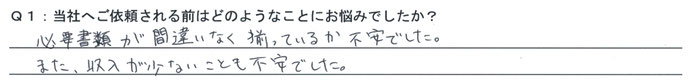 Q1：当社へご依頼される前はどのようなことにお悩みでしたか？
必要書類が間違いなく揃っているか不安でした。
また、収入が少ないことも不安でした。